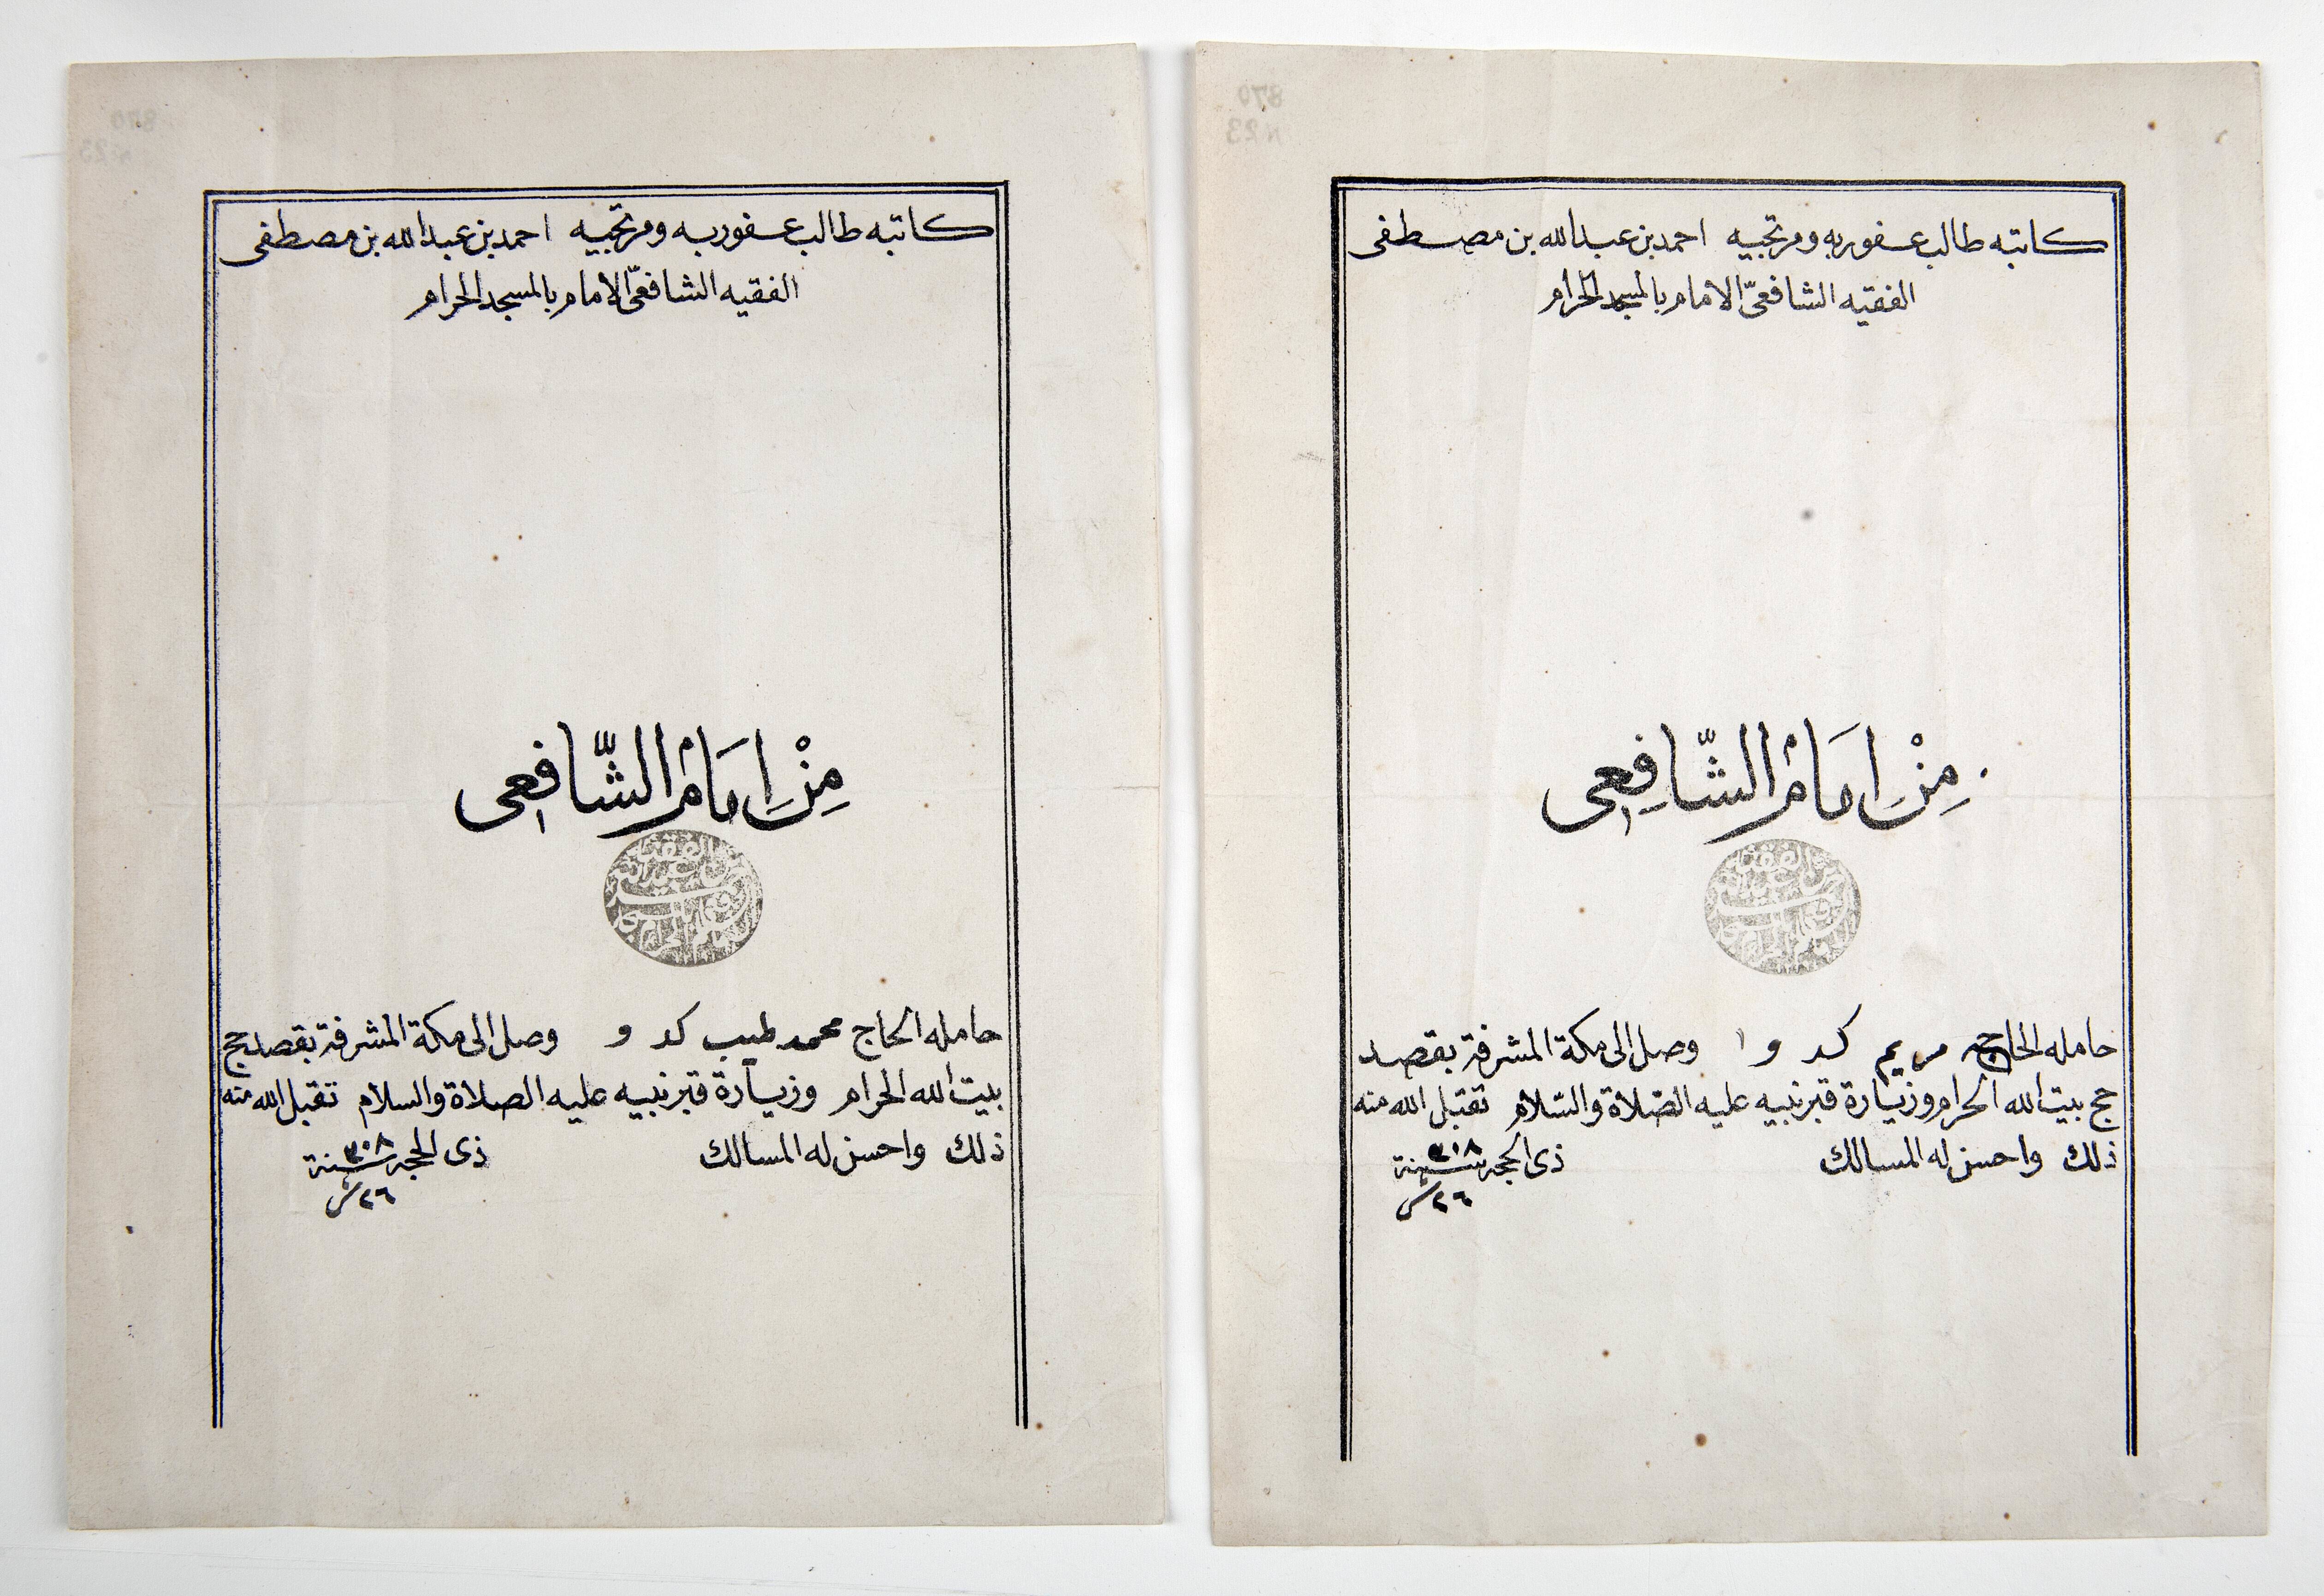 كاتبه طالب عفو ربه ومرتجيه احمد بن عبدالله بن مصطفى
الفقيه الشافعىّ الامام بالمسجد الحرام
مِنْ اِمَامْ الشّافعى
حامله الحاج محمد طيب كد و وصل الى مكة المشرفة بقصد حج
بيت الله الحرام وزيارة قبر نبيه عليه الصلاة والسلام تقبل الله منه
ذلك واحسن له المسالك ذى الحجه سنة ٣٠٨
٢٦
كاتبه طالب عفو ربه ومرتجيه احمد بن عبدالله بن مصطفى
الفقيه الشافعىّ الامام بالمسجد الحرام
مِنْ اِمَامْ الشّافِعِى
حامله الحاجه مريم كد و ا وصل الى مكة المشرفة بقصد
حج بيت الله الحرام وزيارة قبر نبيه عليه الصّلاة والسّلام تقبل الله منه
ذلك واحسن له المسالك ذى الحجه سنة ٣٠٨
٢٦